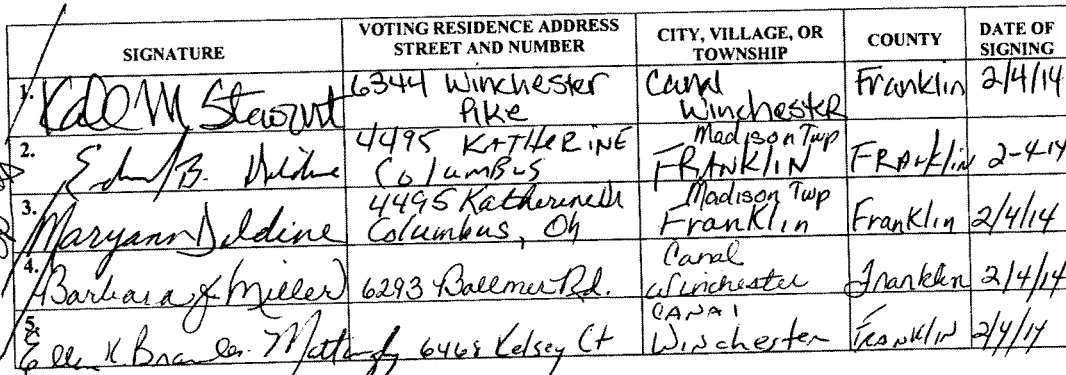 SIGNATURE VOTING RESIDENCE ADDRESS STREET AND NUMBER CITY, VILLAGE, OR TOWNSHIP COUNTY DATE OF SIGNING
1. Stewart 6344 Winchester Pike Canal Winchester Franklin 2/4/14
2. B. Dildine 4495 KATHERINE Columbus Madison Twp FRANKLIN FRANKLIN 2-4-14
3. Maryann Dildine 4495 Katherine Columbus, Oh Madison Twp Franklin Franklin 2/4/14
4. Barbara J. Miller 6293 Rd. Canal Winchester Franklin 2/4/14
5. K 6468 Kelsey Ct CANAl Winchester FRANKLIN 2/4/14